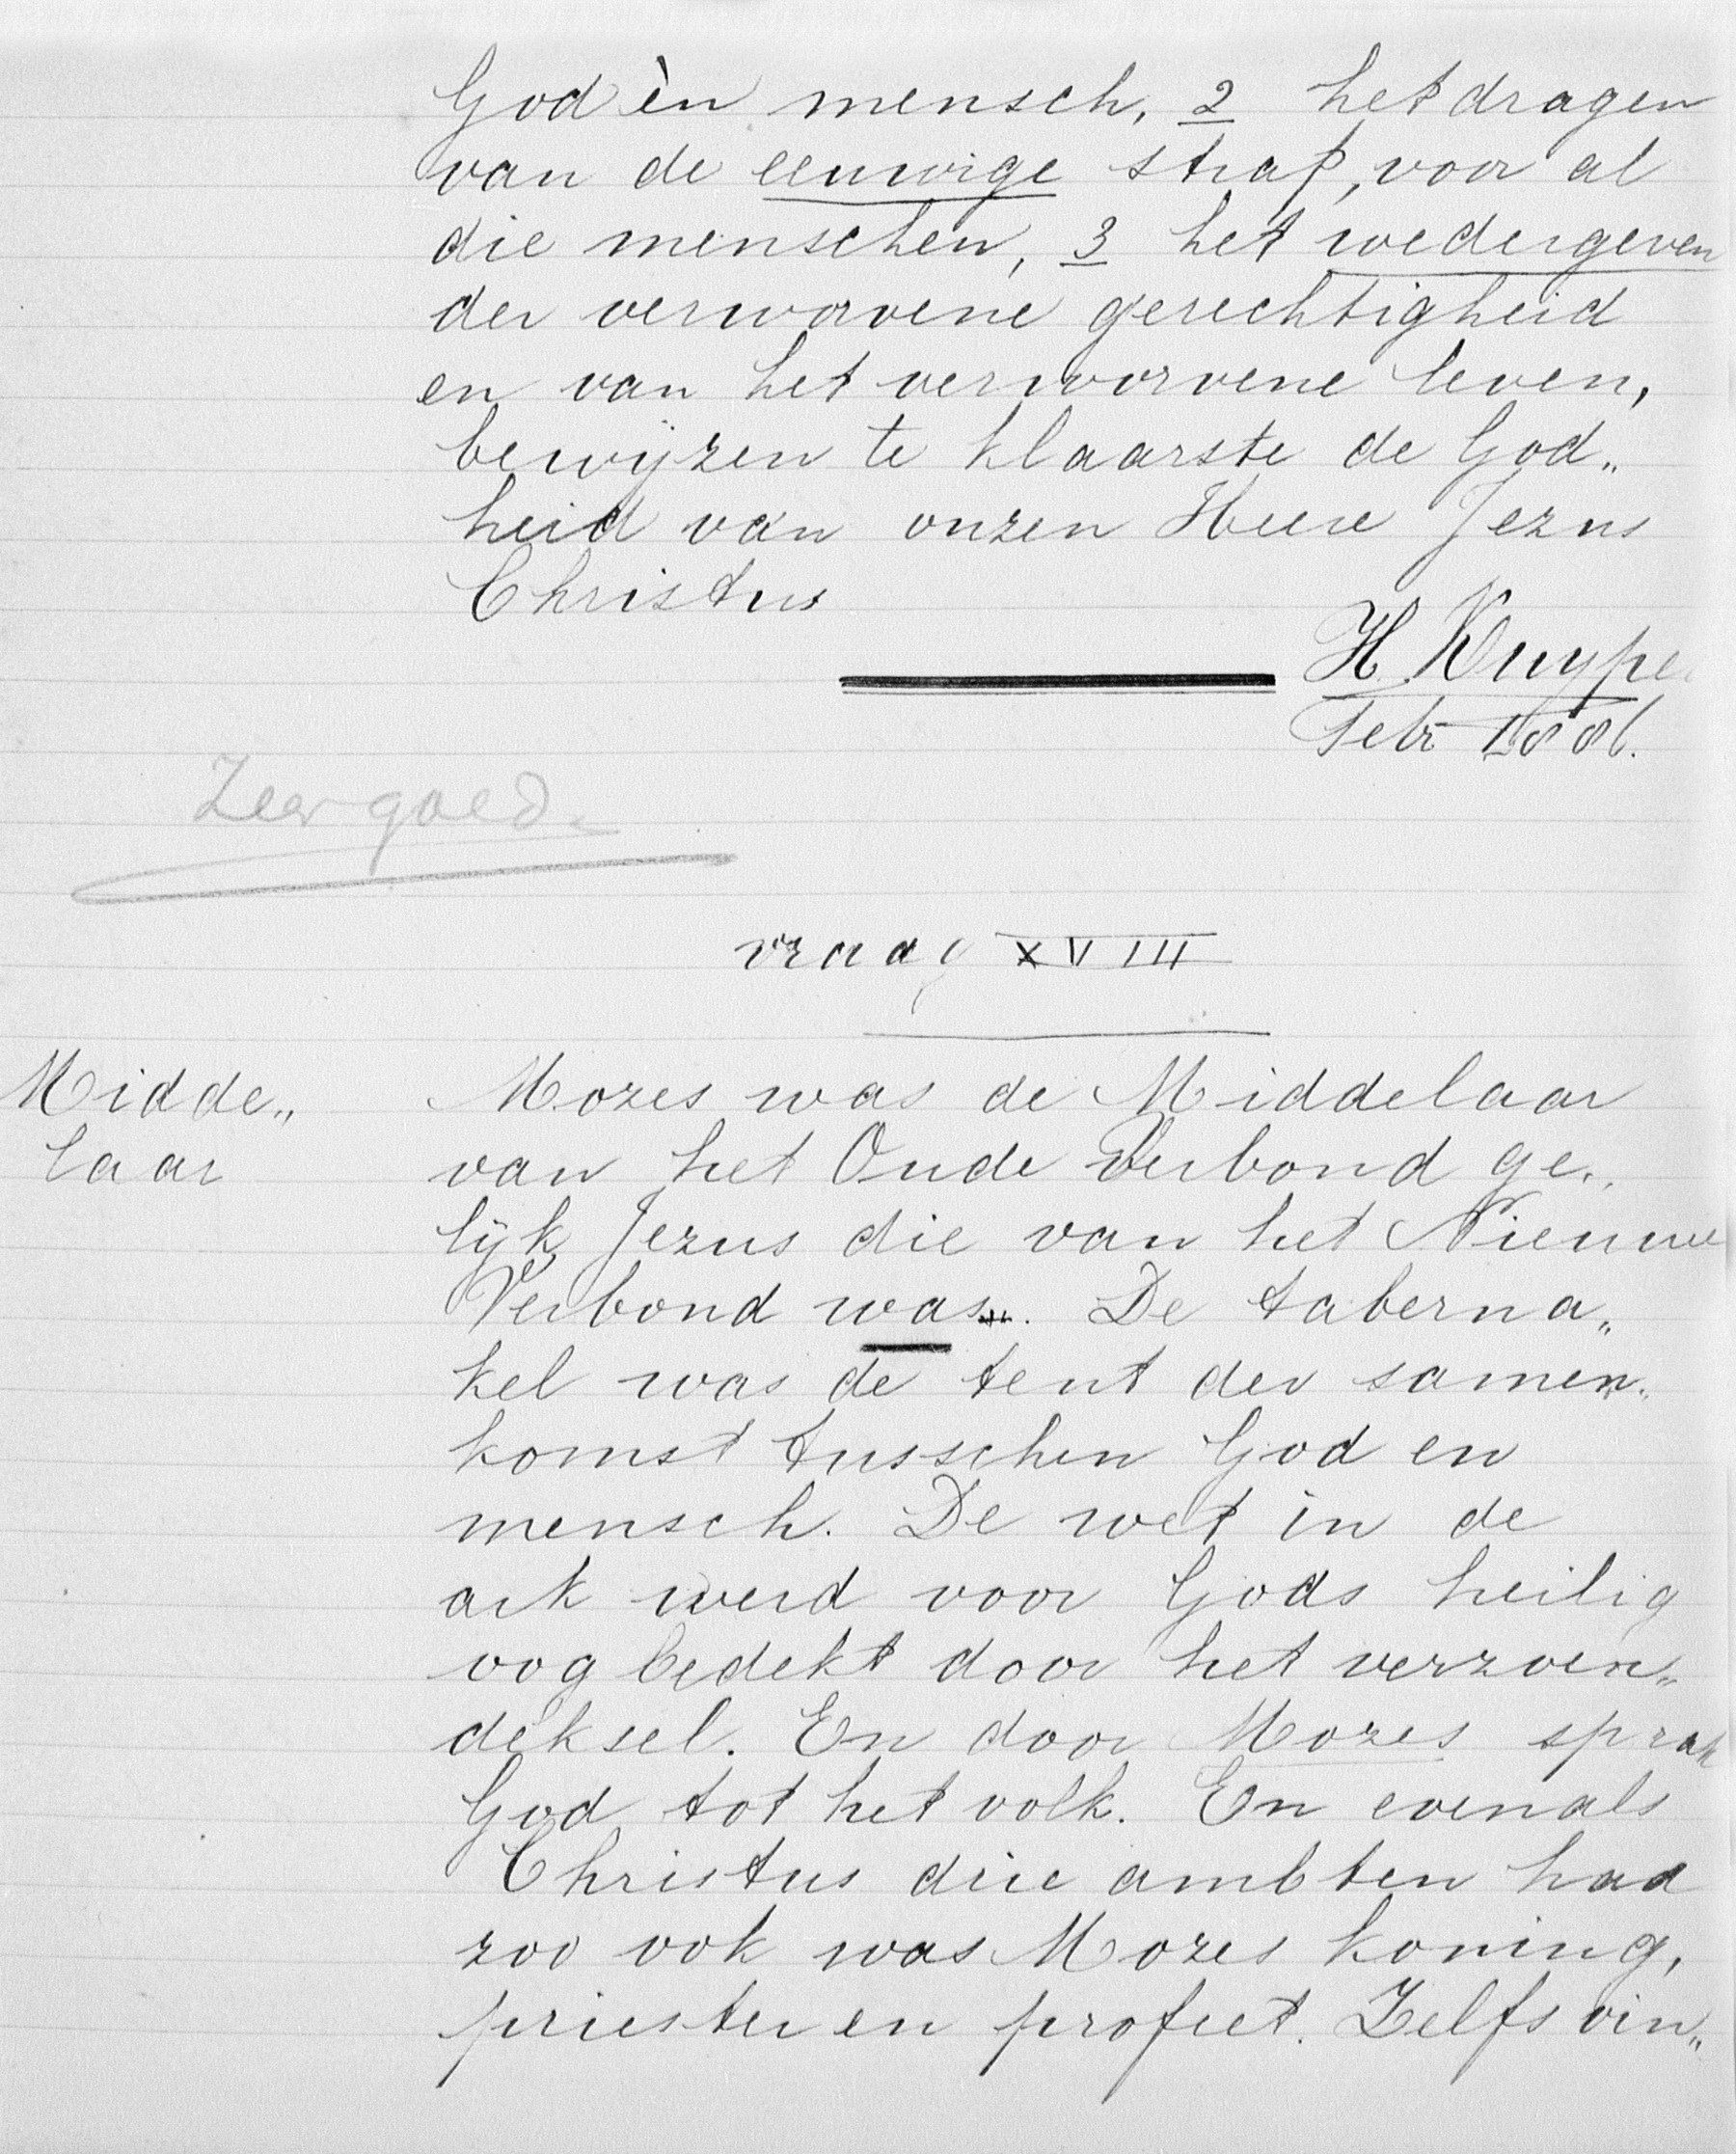 God èn mensch, 2 het dragen
van de eeuwige straf, voor al
die menschen, 3 het wedergeven
der verworvene gerechtigheid
en van het verworvene leven,
bewijzen te klaarste de God„
heid van onzen Heere Jezus
Christus
H. Kuype
Febr 1886.
Zeer goed.
vraag XVIII
Midde„
laar
Mozes was de Middelaar
van het Oude Verbond ge„
lijk Jezus die van het Nieuwe
Verbond was. De taberna„
kel was de tent der samen„
komst tusschen God en
mensch. De wet in de
ark werd voor Gods heilig
oog bedekt door het verzoen„
deksel. En door Mozes sprak
God tot het volk. En evenals
Christus drie ambten had
zoo ook was Mozes koning,
priester en profeet. Zelfs vin„